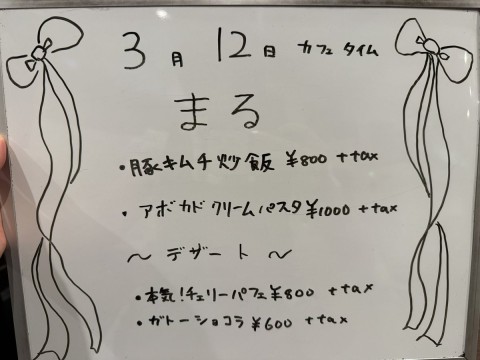 3月12日 カフェタイム
まる
・豚キムチ炒飯 ¥800 +tax
・アボカドクリームパスタ ¥1000 +tax
〜デザート〜
・本気!チェリーパフェ ¥800 +tax
・ガトーショコラ ¥600 +tax